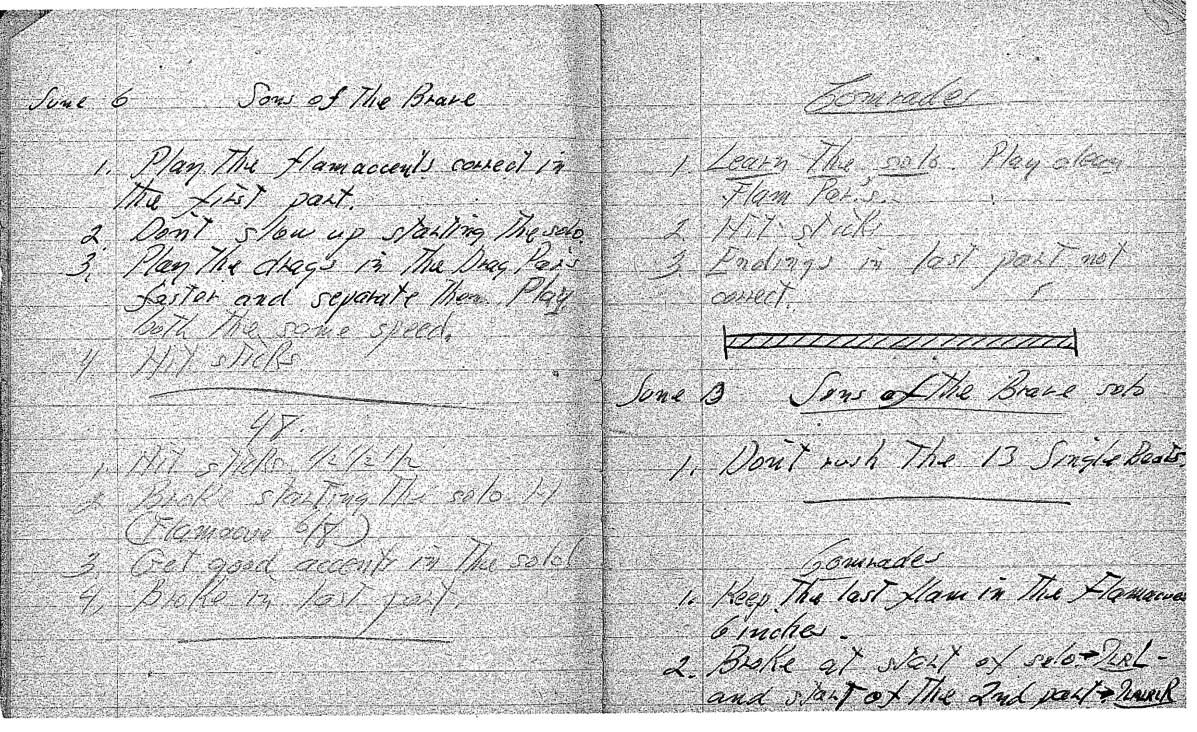 June 6 Sons of The Brave
1. Play The flamaccents correct in
The first part.
2. Don't slow up starting The solo.
3. Play The drags in The Drag Par's
faster and separate Them. Play
both The same speed.
4 Hit sticks
48.
1. Hit sticks 1/2 1/2 1/2
2 Broke starting The solo.
(Flamacue 6/8)
3. Get good accents in The solo
4. Broke in last part.
Comrades
1. Learn The solo. Play
Flam Par's.
2 Hit sticks
3 Endings in last part not
correct.
June 13 Sons of The Brave solo
1. Don't rush The 13 Single Beats.
Comrades
1. Keep The last flam in The Flamacues
6 inches.
2. Broke at start of solo→
and start of The 2nd part→